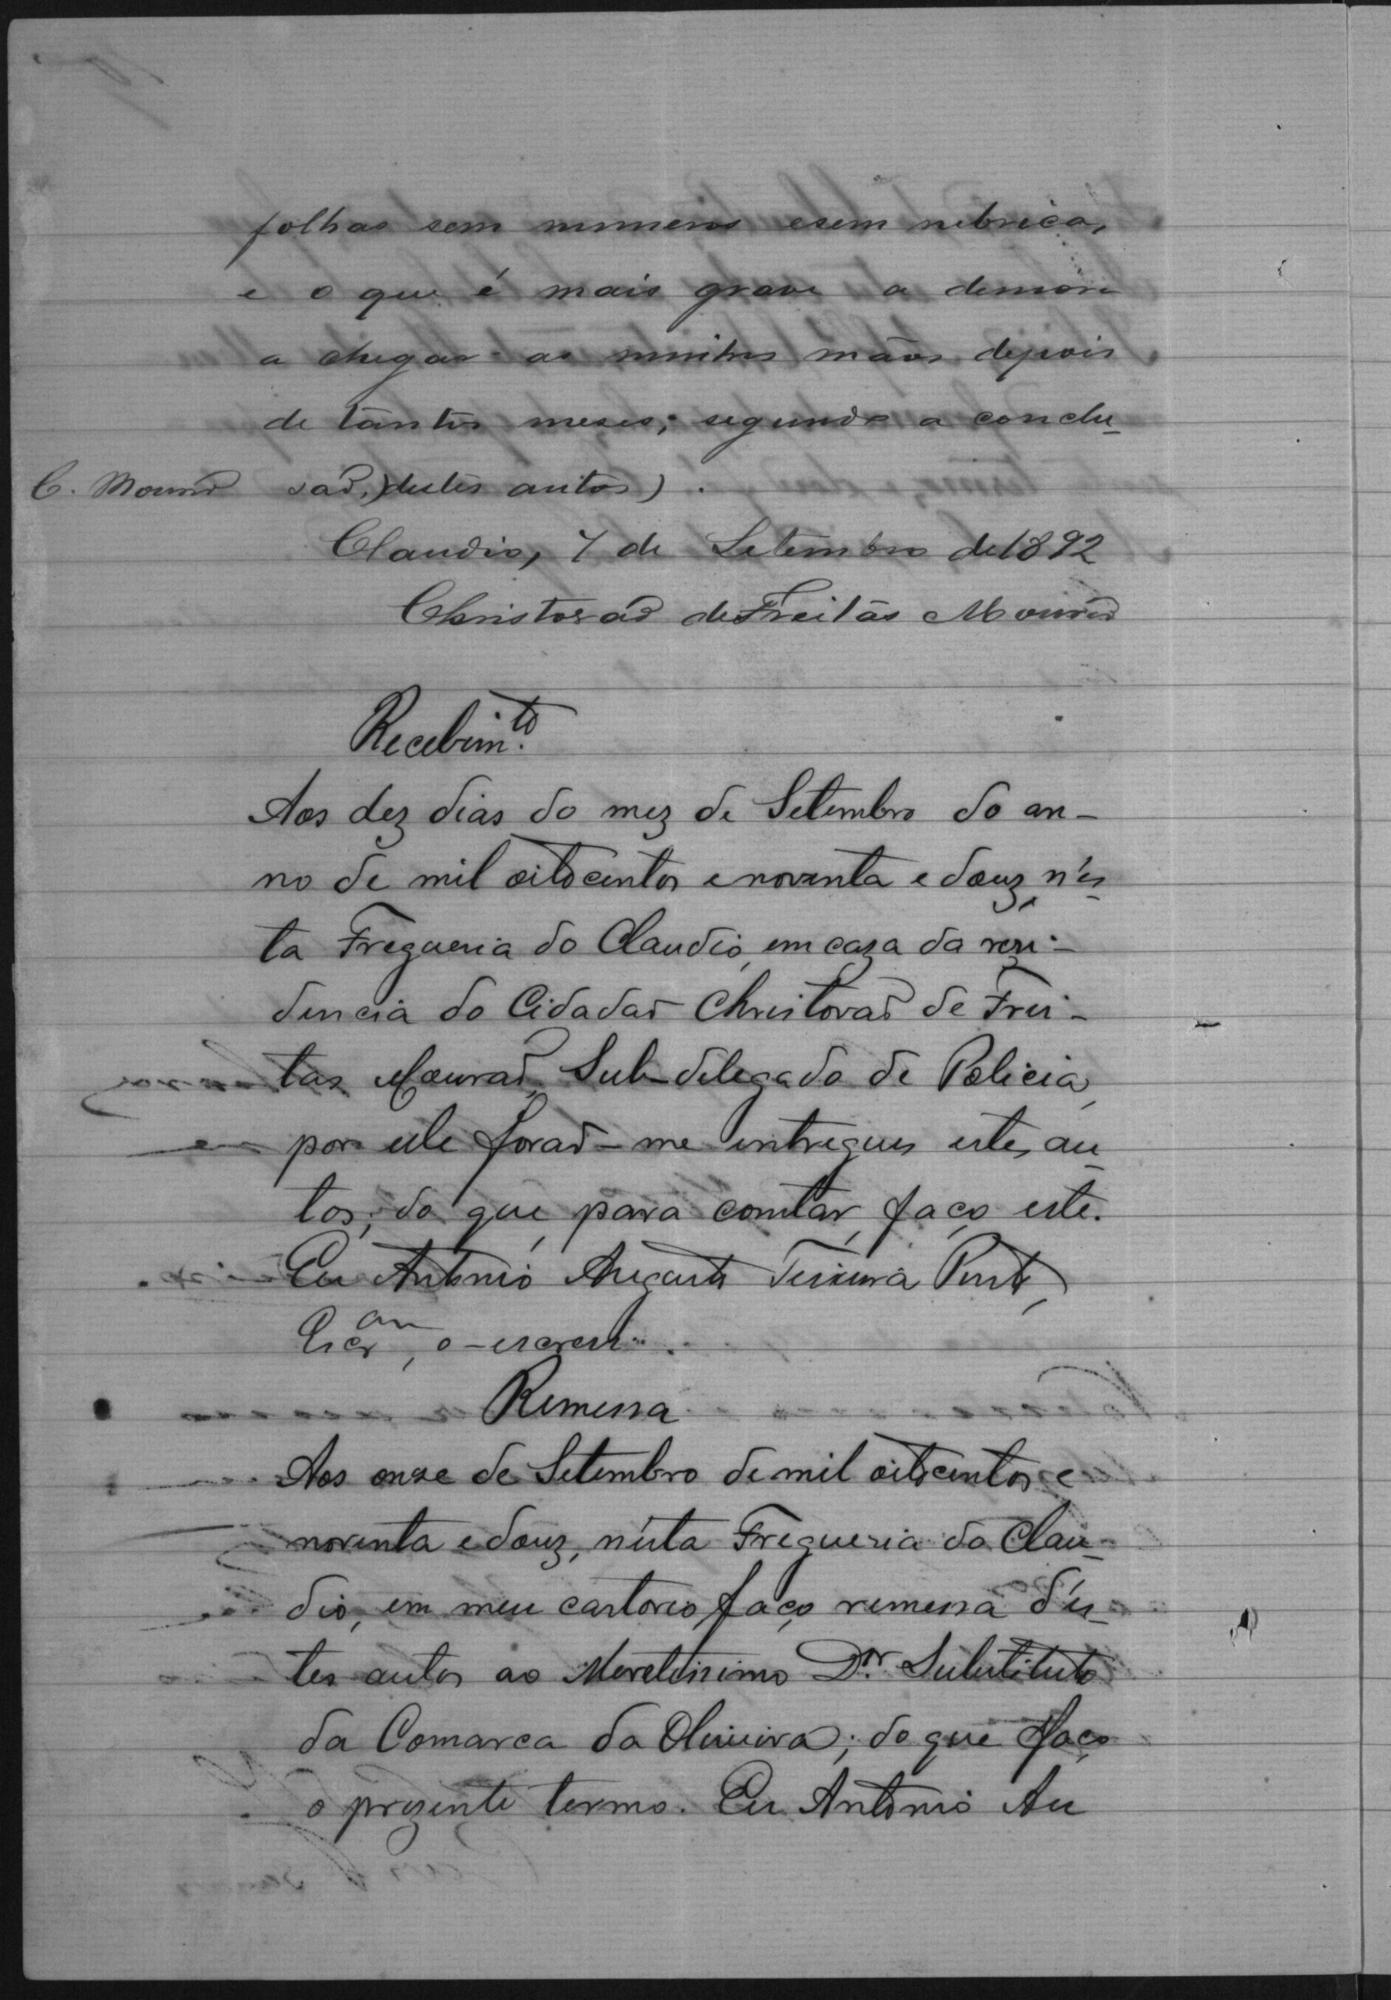 folhas sem numeros esem rubrica,
e o que é mais grave a demora
a chegar as minhas mãos depois
de tantos meses; segundo a conclu_
C. Mourão são, destes autos).
Claudio, 7 de Setembro de 1892
Christovaõ de Freitas Mouraõ
Recebim.to
Aos dez dias do mez de Setembro do an-
no de mil oitocentos e noventa e douz, n'es_
ta Freguesia do Claudio, em caza da rezi-
dencia do Cidadaõ Christovaõ de Frei-
tas Mouraõ, Sub-delegado de Policia,
por elle foraõ-me entregues estes au_
tos; do que, para constar, faço este.
Eu Antonio Augusto Teixeira Pinto,
Escr.am, o-escrevi.
Remessa
Aos onze de Setembro de mil oitocentos e
noventa e douz, n'esta Freguezia do Clau-
dio, em meu cartorio, faço remessa d'es_
tes autos ao Meretissimo Dr. Substituto
da Comarca da Oliveira; do que faço
o prezente termo. Eu Antonio Au